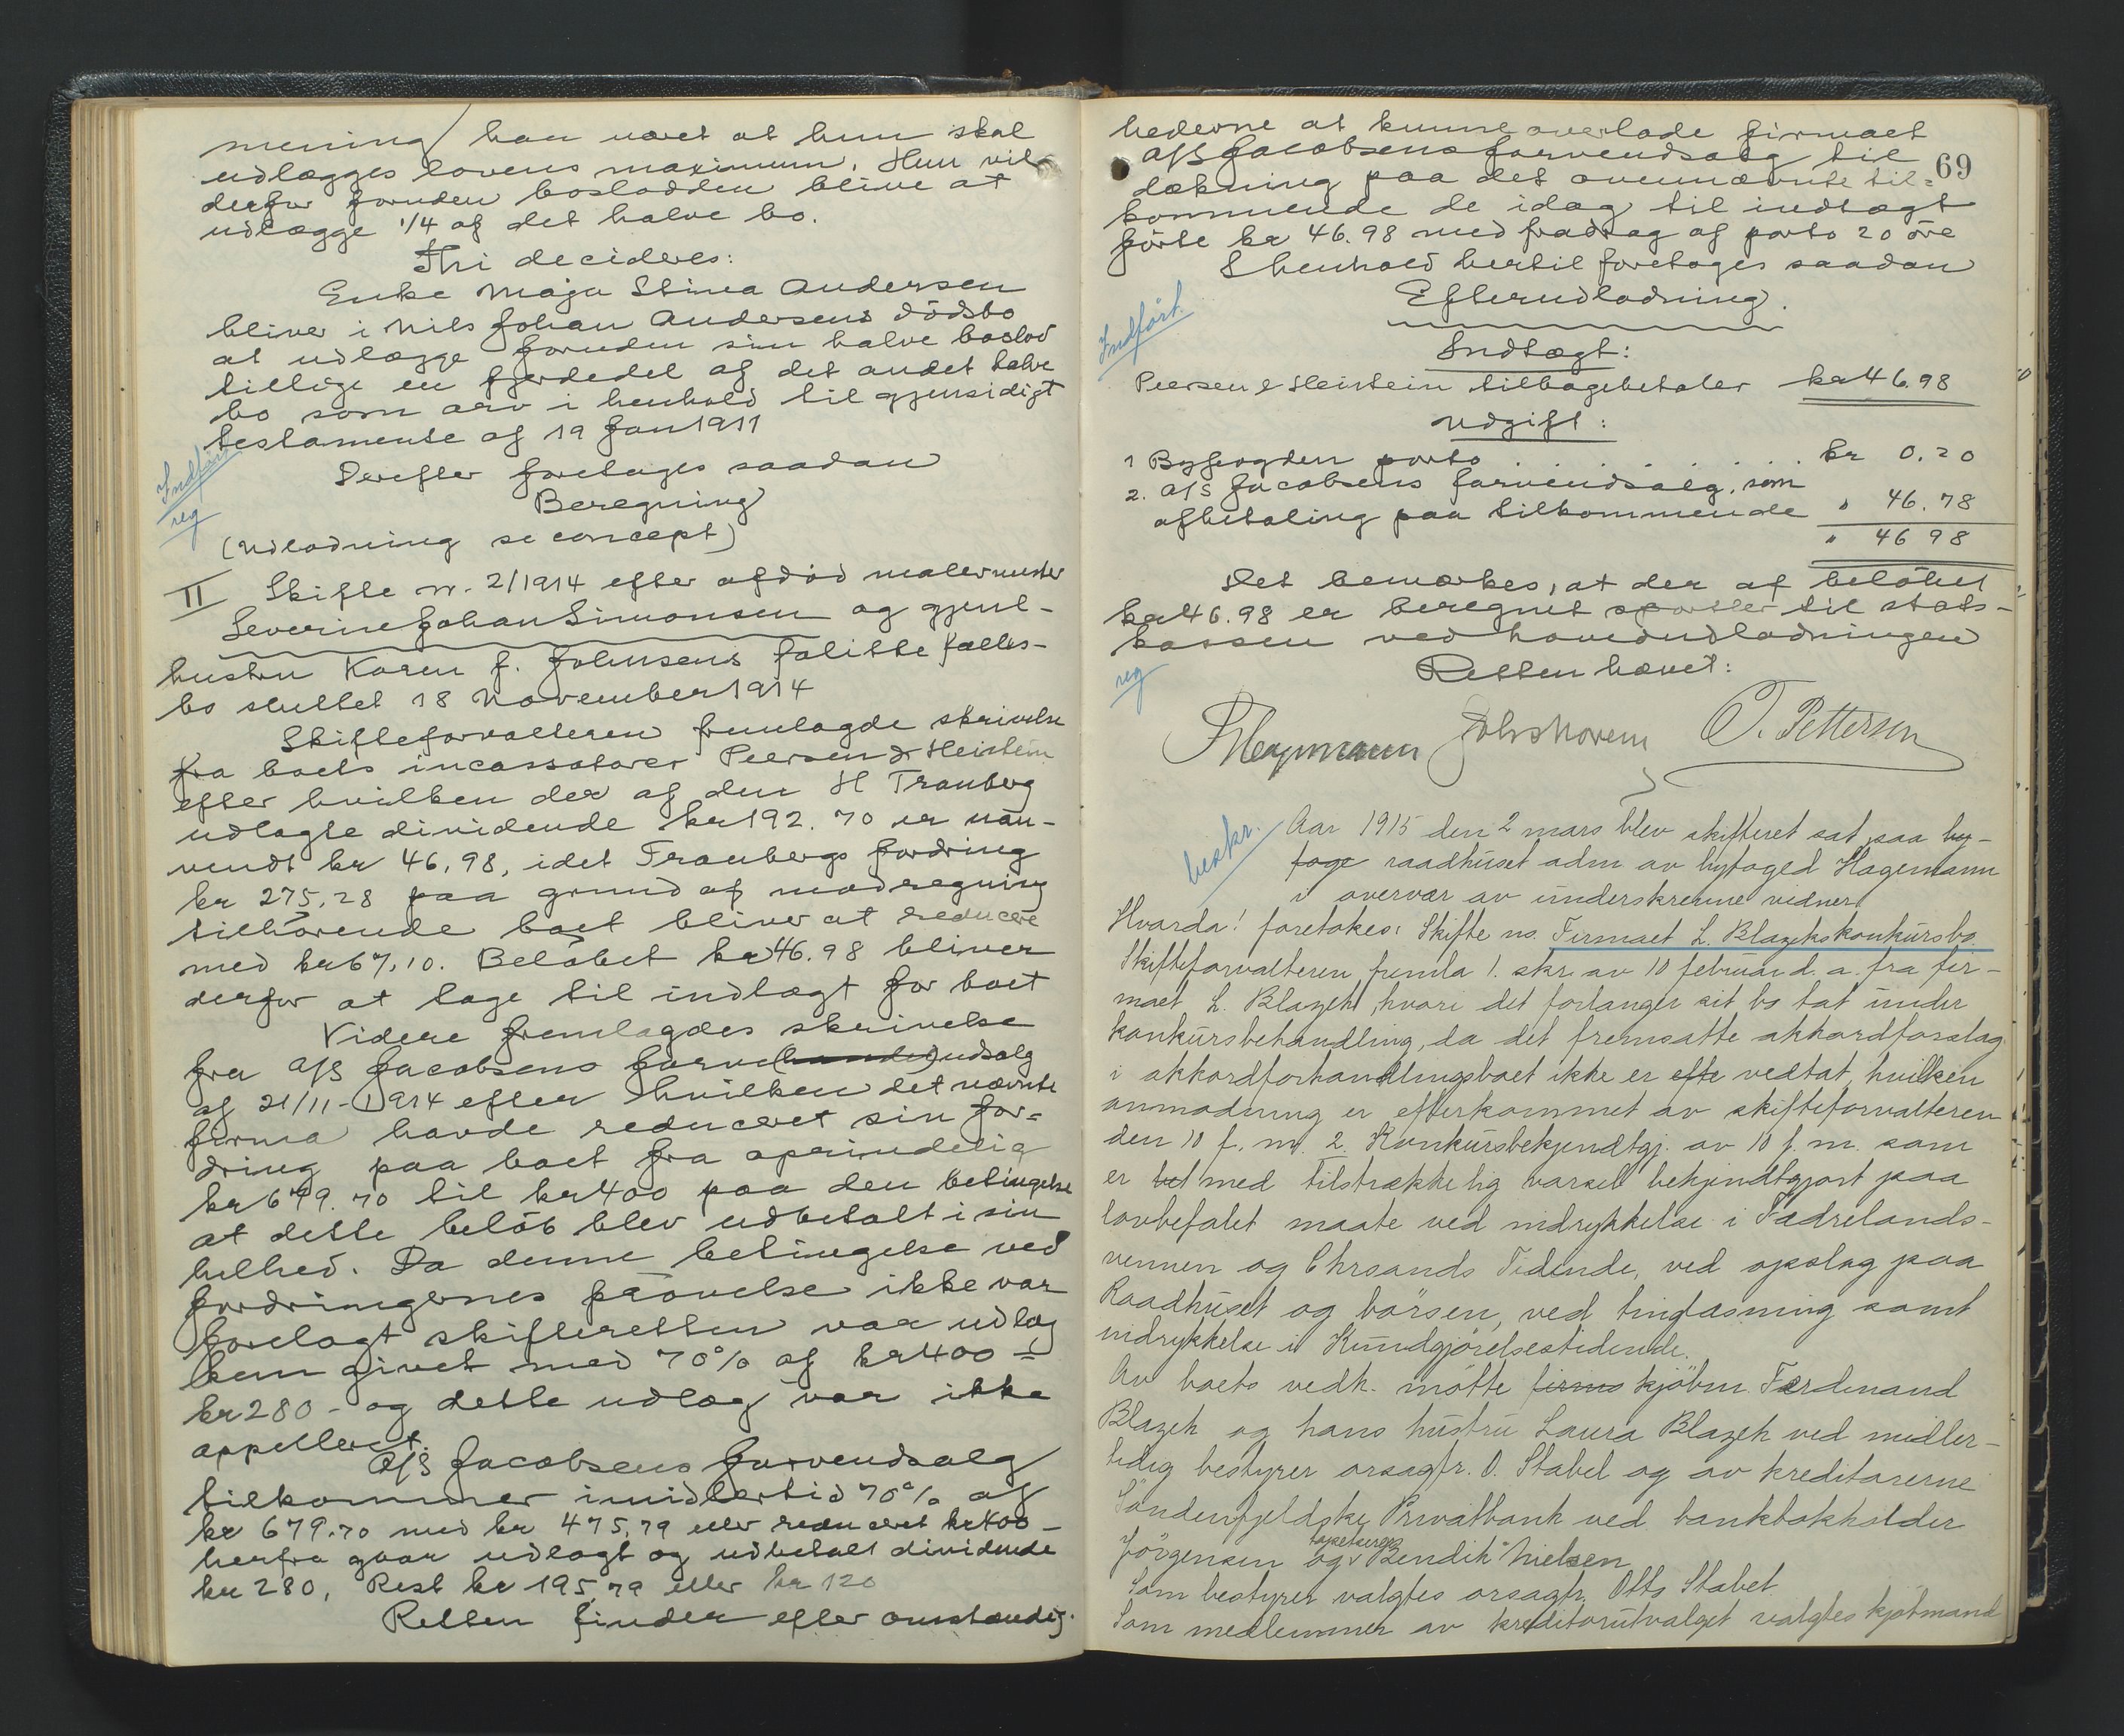 mening har været at hun skal
udlægges lovens maximum. Hun vil
derfor foruden boslodden blive at
udlægge 1/4 af det halve bo.
Thi decideres:
Enke Maja Stina Andersen
bliver i Nils Johan Andersens dödsbo
at udlægge foruden sin halve boslod
tillige en fjerdedel af det andet halve
bo som arv i henhold til gjensidigt
testamente af 19 Jan 1911
Indført
reg
Derefter foretages saadan
Beregning
(Udlodning se concept)
II Skifte nr. 2/1914 efter afdöd malermester
Severine Johan Simonsen og gjenl-
hustru Karen f. Johnsens fallitte fælles-
bo sluttet 18 November 1914
Skifteforvalteren fremlagde skrivelse
fra boets incassatorer Peersen & Heistein
efter hvilken der af den H Tranberg
udlagte dividende kr 192.70 er uan-
vendt kr 46,98, idet Tranbergs fordring
kr 275,28 paa grund af modregning
tilhörende boet bliver at reducere
med kr 67,10. Belöbet kr 46.98 bliver
derfor at tage til indtægt for boet
Videre fremlagdes skrivelse
fra A/S Jacobsens farve(handel)udsalg
af 21/11-1914 efter hvilken det nævnte
firma havde reduceret sin for-
dring paa boet fra oprindelig
kr 679.70 til kr 400 paa den betingelse
at dette belöb blev udbetalt i sin
helhed. Da denne betingelse ved
fordringernes prövelse ikke var
forelagt skifteretten var udlæg
kun givet med 70% af kr 400 =
kr 280 - og dette udlæg var ikke
appelleret.
A/S Jacobsens farveudsalg
tilkommer imidlertid 70% af
kr 679.70 med kr 475,79 eller reduceret kr 400 -
herfra gaar udlagt og udbetalt dividende
kr 280, Rest kr 195,79 eller kr 120
Retten finder efter omstændig-
69
hederne at kunne overlade firmaet
A/S Jacobsens farveudsalg til
dækning paa det ovennævnte til-
kommende de idag til indtægt
förte kr 46.98 med fradrag af porto 20 öre
I henhold hertil foretages saadan
Efterudlodning.
Indført.
Indtægt:
Peersen & Heistein tilbagebetaler kr 46.98
Udgift:
1 Byfogden porto . . . . . . . kr 0.20
2. A/S Jacobsens farveudsalg, som
afbetaling paa tilkommende " 46.78
" 46 98
Det bemærkes, at der af belöbet
kr 46.98 er beregnet sportler til stats-
kassen ved hovedudlodningen
reg
Retten hævet:
FHagemann Johs Noren O. Pettersen
beskr.
Aar 1915 den 2 mars blev skifteret sat paa by-
foge raadhuset adm av byfoged Hagemann
i overvær av underskrevne vidner
Hvorda! foretokes: Skifte no. Firmaet L. Blazeks konkursbo
Skifteforvalteren fremla 1. skr. av 10 februar d. a. fra fir-
maet L. Blazek, hvori det forlanger sit bo tat under
konkursbehandling, da det fremsatte akkordforslag
i akkordforhandlingsboet ikke er efte vedtat, hvilken
anmodning er efterkommet av skifteforvalteren
den 10 f. m. 2. Konkursbekjendtgj. av 10 f. m. som
er bet med tilstrækkelig varsel bekjendtgjort paa
lovbefalet maate ved indrykkelse i Fædrelands-
vennen og Chrsands Tidende, ved opslag paa
Raadhuset og börsen, ved tinglæsning samt
indrykkelse i Kundgjörelsestidende.
Av boets vedk. mötte firma kjöbm. Ferdinand
Blazek og hans hustru Laura Blazek ved midler-
tidig bestyrer orsagfr. O. Stabel og av kreditorerne
Söndenfjeldske Privatbank ved bankbokholder
Jörgensen og tapetserer Bendik Nielsen
Som bestyrer valgtes orsagfr. Otto Stabel
Som medlemmer av kreditorutvalget valgtes kjöbmand